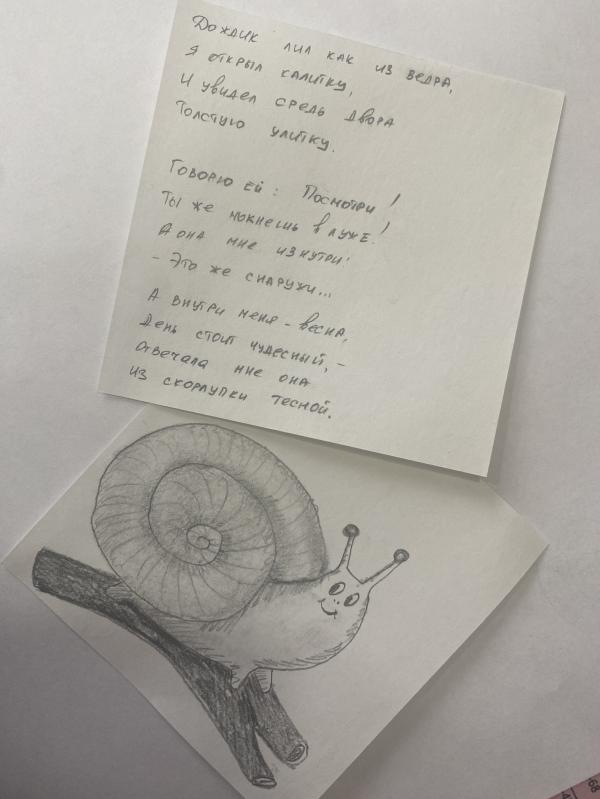 Дождик лил как из ведра,
Я открыл калитку,
И увидел средь двора
Толстую улитку.
Говорю ей: Посмотри!
Ты же мокнешь в луже!
А она мне изнутри:
- Это же снаружи...
А внутри меня - весна,
День стоит чудесный, -
Отвечала мне она
Из скорлупки тесной.
68